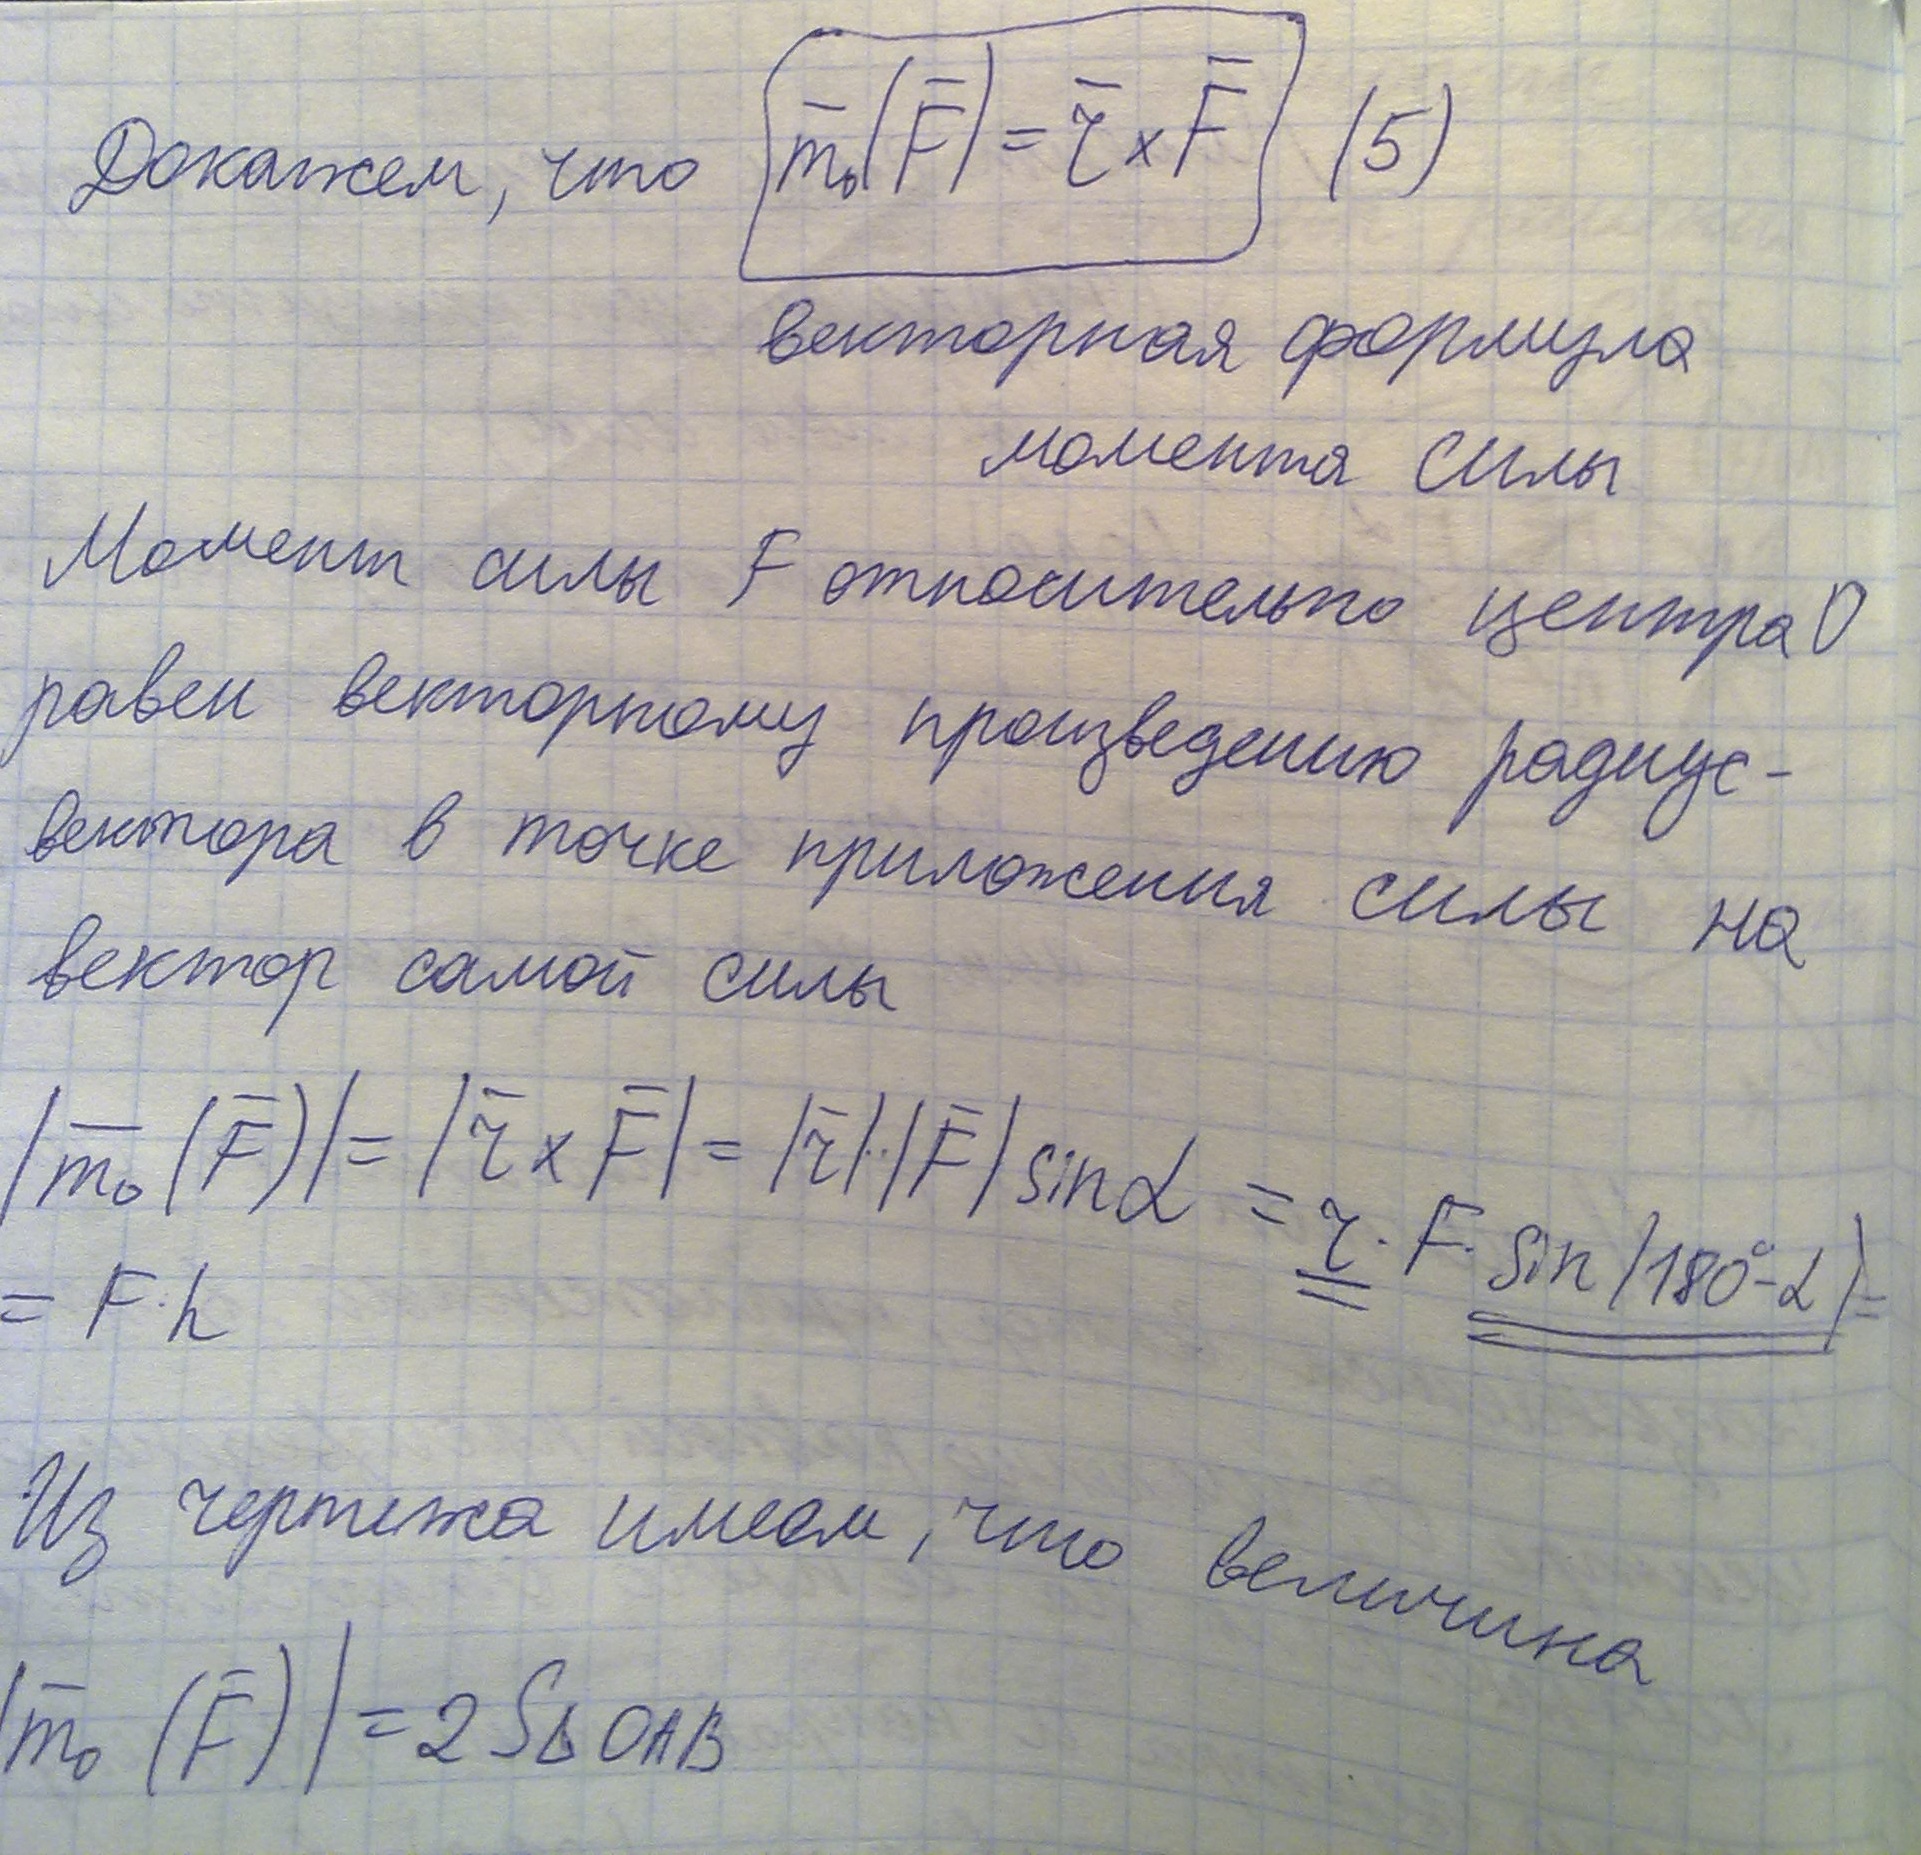 Докажем, что m̄₀(F̄) = r̄ × F̄ (5)
векторная формула
момента силы
Момент силы F относительно центра О
равен векторному произведению радиус-
вектора в точке приложения силы на
вектор самой силы
|m̄₀(F̄)| = |r̄ × F̄| = |r̄|·|F̄| sin α = r · F · sin(180°-α) =
= F · h
Из чертежа имеем, что величина
|m̄₀(F̄)| = 2 S∆ OAB